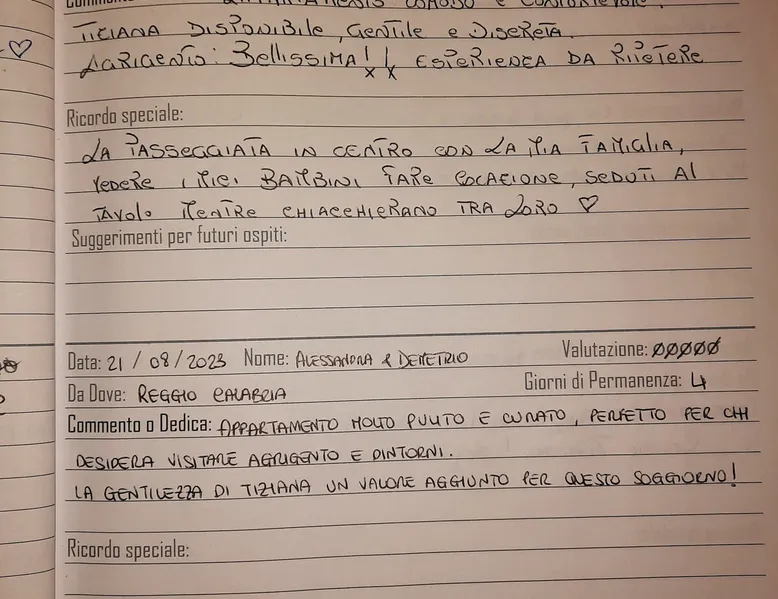 TIZIANA DISPONIBILE, GENTILE e DISCRETA.
AGRIGENTO: BELLISSIMA!! ESPERIENZA DA RIPETERE
Ricordo speciale:
LA PASSEGGIATA IN CENTRO CON LA MIA FAMIGLIA,
VEDERE I MIEI BAMBINI FARE COLAZIONE, SEDUTI AL
TAVOLO MENTRE CHIACCHIERANO TRA LORO ♡
Suggerimenti per futuri ospiti:
Data: 21 / 08 / 2023 Nome: ALESSANDRA & DEMETRIO Valutazione: ØØØØØ
Da Dove: REGGIO CALABRIA Giorni di Permanenza: 4
Commento o Dedica: APPARTAMENTO MOLTO PULITO E CURATO, PERFETTO PER CHI
DESIDERA VISITARE AGRIGENTO E DINTORNI.
LA GENTILEZZA DI TIZIANA UN VALORE AGGIUNTO PER QUESTO SOGGIORNO!
Ricordo speciale: